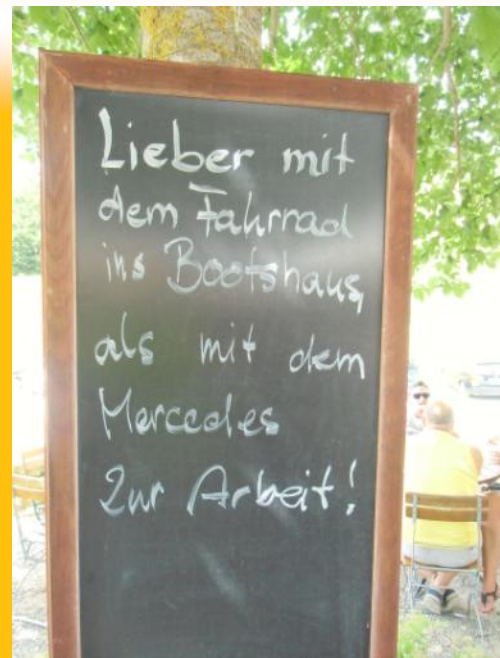 Lieber mit
dem Fahrrad
ins Bootshaus,
als mit dem
Mercedes
Zur Arbeit!